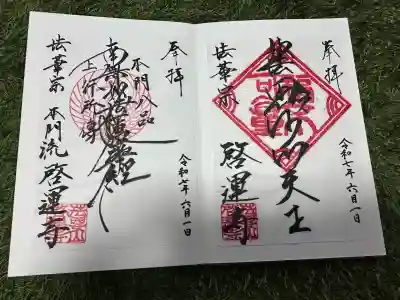 奉拝
毘沙門天王
法華宗
啓運寺
令和七年六月一日
奉拝
本門八品
上行所傳
南無妙法蓮華経
法華宗 本門流 啓運寺
令和七年六月一日